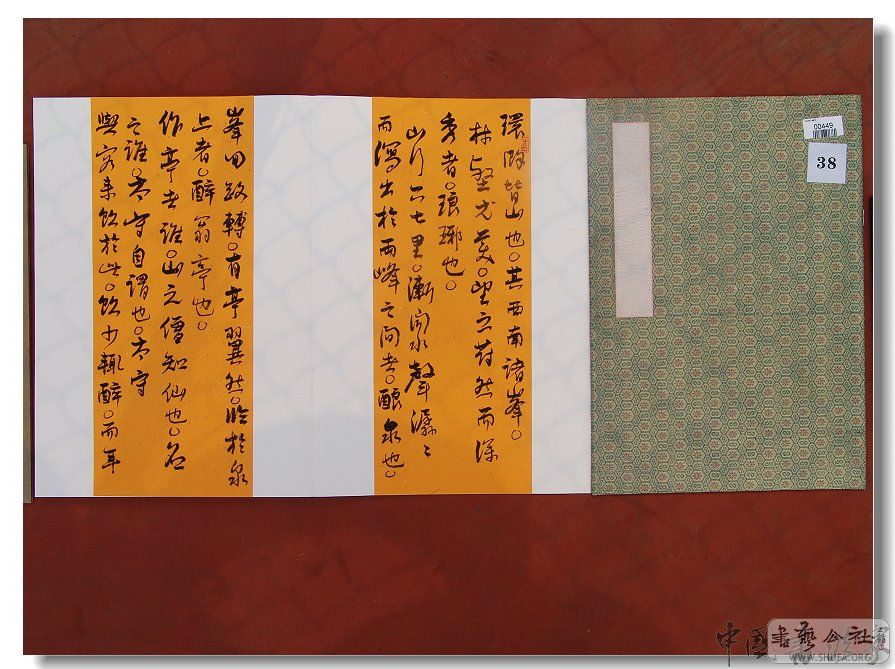 環滁皆山也。其西南諸峯。
林壑尤美。望之蔚然而深
秀者。琅琊也。
山行六七里。漸聞水聲潺〻
而瀉出於兩峰之間者。釀泉也。
峯回路轉。有亭翼然。臨於泉
上者。醉翁亭也。
作亭者誰。山之僧知仙也。名
之誰。太守自謂也。太守
與客來飲於此。飲少輒醉。而年
00449
38
中國書藝公社
WWW.SHUFA.ORG